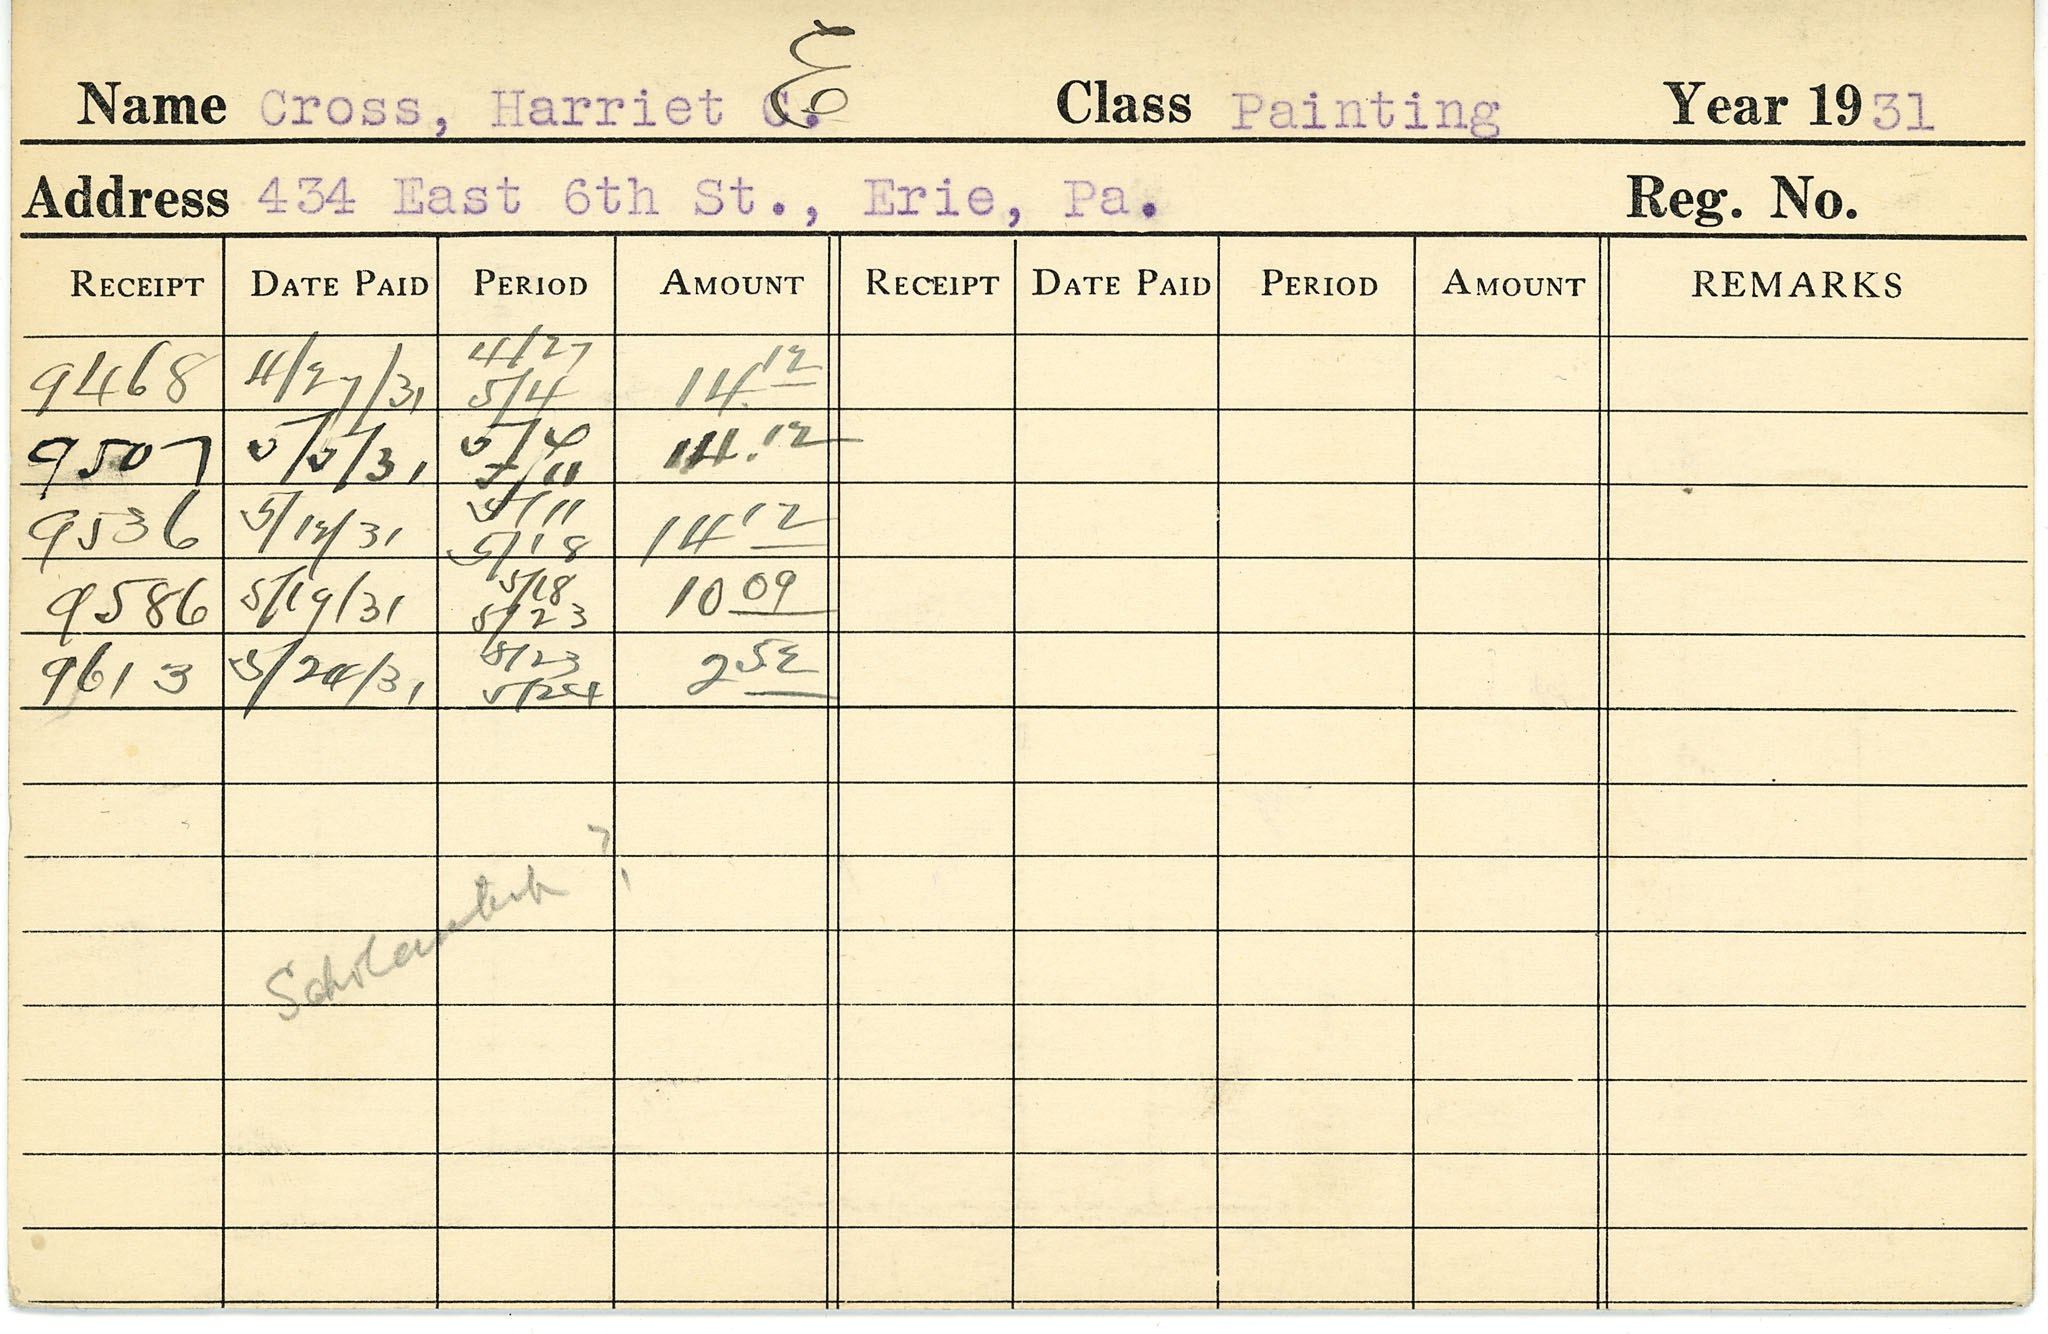 Name Cross, Harriet C. E Class Painting Year 1931
Address 434 East 6th St., Erie, Pa. Reg. No.
RECEIPT DATE PAID PERIOD AMOUNT RECEIPT DATE PAID PERIOD AMOUNT REMARKS
9468 4/27/31 4/27 5/4 14.12
9507 5/5/31 5/4 5/11 14.12
9536 5/12/31 5/11 5/18 14 12
9586 5/19/31 5/18 5/23 10 09
9613 5/24/31 5/23 5/24 2 52
?